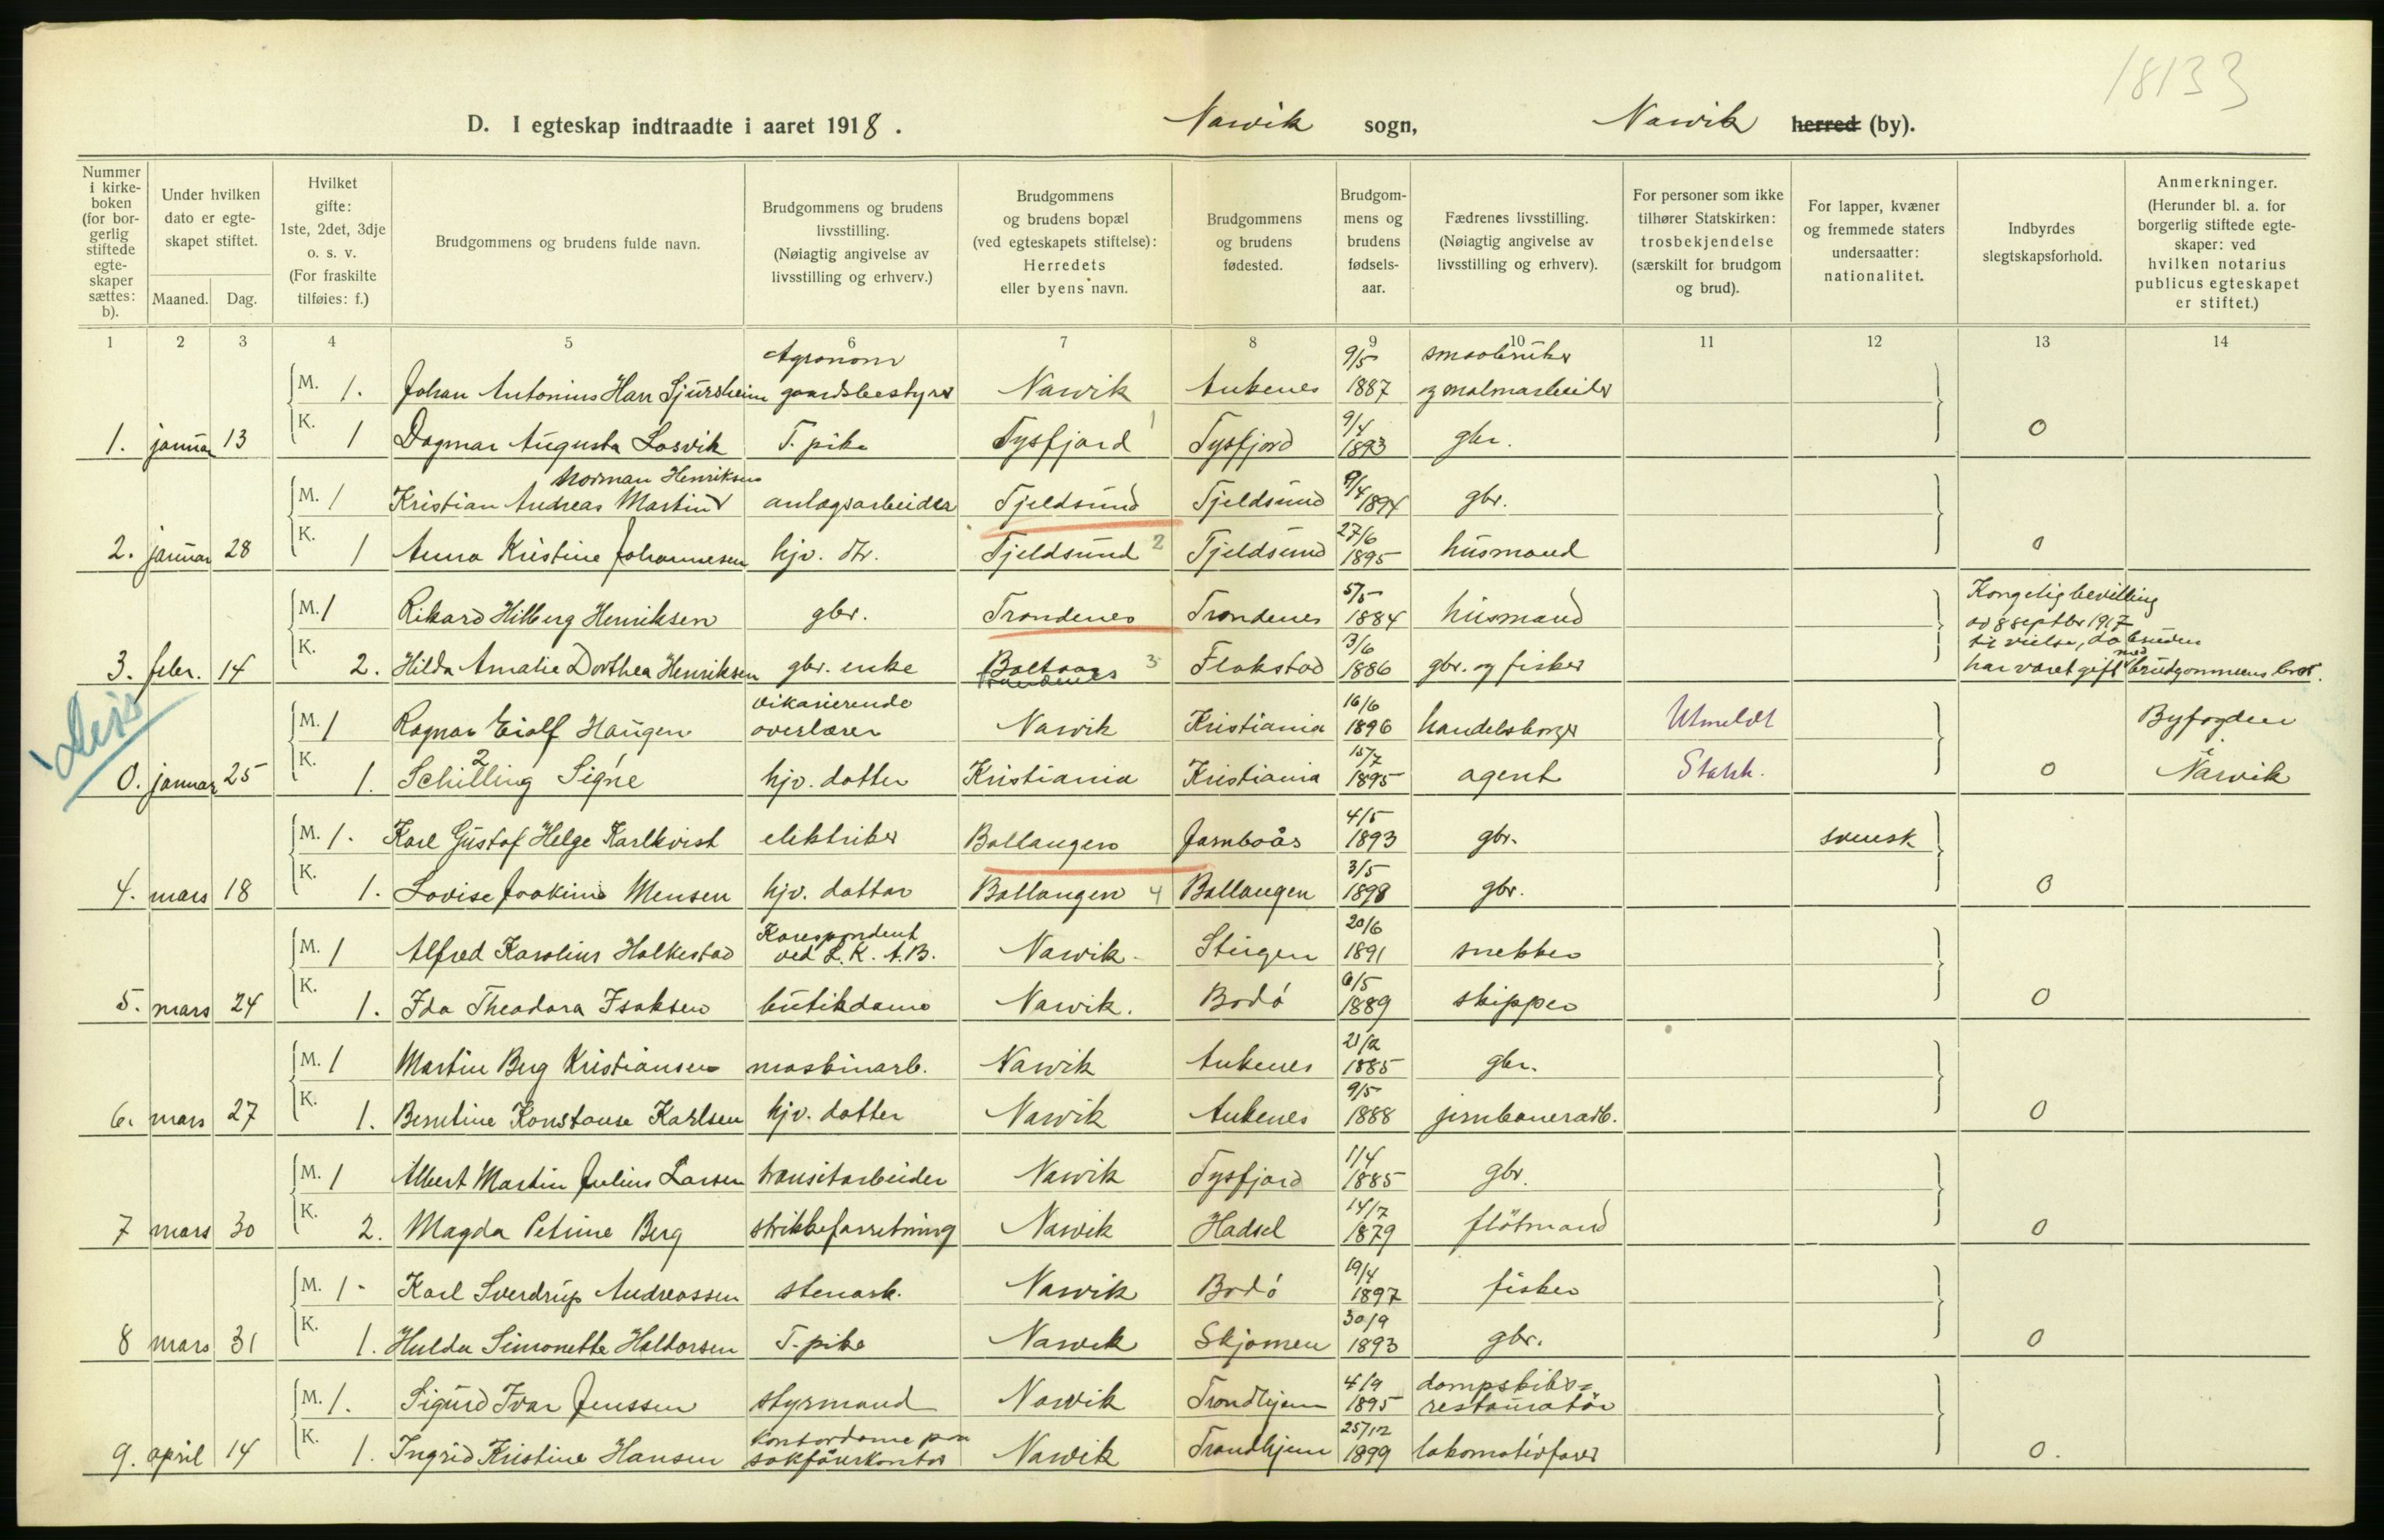 18133
D. I egteskap indtraadte i aaret 1918. Narvik sogn, Narvik herred (by).
Nummer i kirke-boken (for bor-gerlig stiftede egte-skaper sættes: b).
Under hvilken dato er egte-skapet stiftet.
Maaned. Dag.
Hvilket gifte: 1ste, 2det, 3dje o. s. v. (For fraskilte tilføies: f.)
Brudgommens og brudens fulde navn.
Brudgommens og brudens livsstilling. (Nøiagtig angivelse av livsstilling og erhverv.)
Brudgommens og brudens bopæl (ved egteskapets stiftelse): Herredets eller byens navn.
Brudgommens og brudens fødested.
Brudgom-mens og brudens fødsels-aar.
Fædrenes livsstilling. (Nøiagtig angivelse av livsstilling og erhverv).
For personer som ikke tilhører Statskirken: trosbekjendelse (særskilt for brudgom og brud).
For lapper, kvæner og fremmede staters undersaatter: nationalitet.
Indbyrdes slegtskapsforhold.
Anmerkninger. (Herunder bl. a. for borgerlig stiftede egte-skaper: ved hvilken notarius publicus egteskapet er stiftet.)
1 2 3 4 5 6 7 8 9 10 11 12 13 14
Agronom 9/5 smaabruker
M. 1. Johan Antonius Harr Sjursheim gaardsbestyrer Narvik Ankenes 1887 og malmarbeider
1. januar 13 K. 1 Dagmar Augusta Losvik T. pike Tysfjord 1 Tysfjord 9/4 1893 gbr. 0
Norman Henriksen
M. 1 Kristian Andreas Martin anlægsarbeider Tjeldsund Tjeldsund 9/4 1894 gbr.
2. januar 28 K. 1 Anna Kristine Johannesen hjv. dtr. Tjeldsund 2 Tjeldsund 27/6 1895 husmand 0
M. 1 Rikard Hilberg Henriksen gbr. Trondenes Trondenes 5/5 1884 husmand Kongelig bevilling
av 8 septbr 1917
til vielse, da bruden
3. febr. 14 K. 2. Hilda Amalie Dorthea Henriksen gbr. enke Trondenes 3 Flakstad 3/6 1886 gbr. og fisker har været gift med brudgommens bror.
vikarierende
M. 1 Ragnar Eiolf Haugen overlærer Narvik Kristiania 16/6 1896 handelsborger Utmeldt Byfogden
i
0. januar 25 K. 1. Schilling 2 Signe 1 hjv. datter Kristiania Kristiania 15/7 1895 agent Statsk. 0 Narvik
M. 1. Karl Gustaf Helge Karlkvist elektriker Ballangen Jarnboås 4/5 1893 gbr. svensk
4. mars 18 K. 1. Lovise Joakime Mensen hjv. datter Ballangen 4 Ballangen 3/5 1898 gbr. 0
Korespondent
M. 1 Alfred Karolius Halkestad ved L. K. A.B. Narvik. Steigen 20/6 1891 snekker
5. mars 24 K. 1. Ida Theodora Isaksen butikdame Narvik. Bodó 6/5 1889 skipper 0
M. 1 Martin Berg Kristiansen maskinarb. Narvik Ankenes 21/2 1885 gbr.
6. mars 27 K. 1. Berntine Konstanse Karlsen hjv. datter Narvik Ankenes 9/5 1888 jernbanearb. 0
M. 1 Albert Martin Julius Larsen transitarbeider Narvik Tysfjord 1/4 1885 gbr.
7 mars 30 K. 2. Magda Petrine Berg strikkeforretning Narvik Hadsel 14/7 1879 flötmand 0
M. 1 - Karl Sverdrup Andreassen stenarb. Narvik Bodó 19/4 1897 fisker
8 mars 31 K. 1. Hulda Simonette Haldorsen T. pike Narvik Skjomen 30/9 1893 gbr. 0
M. 1. Sigurd Ivar Jenssen styrmand Narvik Trondhjem 4/9 1895 dampskibs=
restauratör
kontordame paa
9. april 14 K. 1. Ingrid Kristine Hansen sakförerkontor Narvik Trondhjem 25/12 1899 lokomotivfører 0.